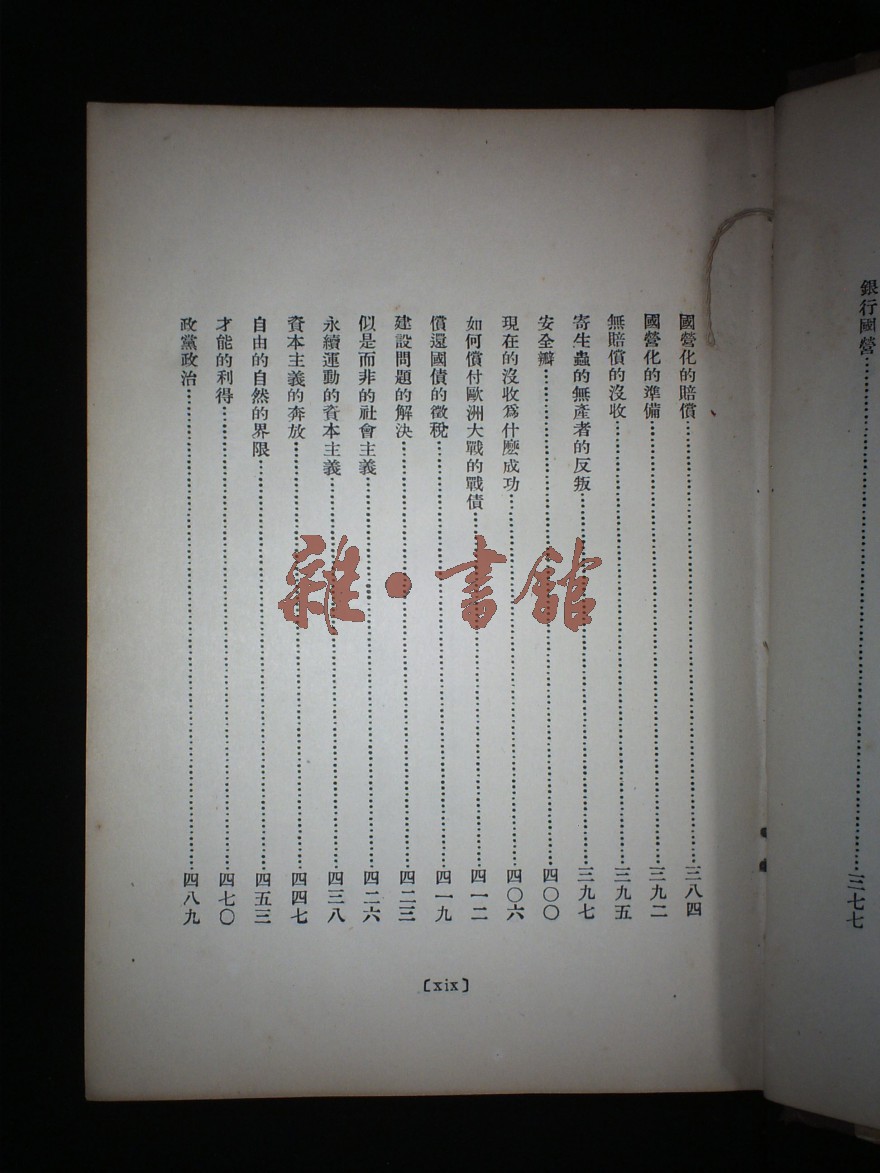 銀行國營……三七七
國營化的賠償……三八四
國營化的準備……三九二
無賠償的沒收……三九五
寄生蟲的無產者的反叛……三九七
安全瓣……四〇〇
現在的沒收爲什麽成功……四〇六
如何償付歐洲大戰的戰債……四一二
償還國債的徵稅……四一九
建設問題的解決……四二三
似是而非的社會主義……四二六
永續運動的資本主義……四三八
資本主義的奔放……四四七
自由的自然的界限……四五三
才能的利得……四七〇
政黨政治……四八九
〔xix〕
雜·書館